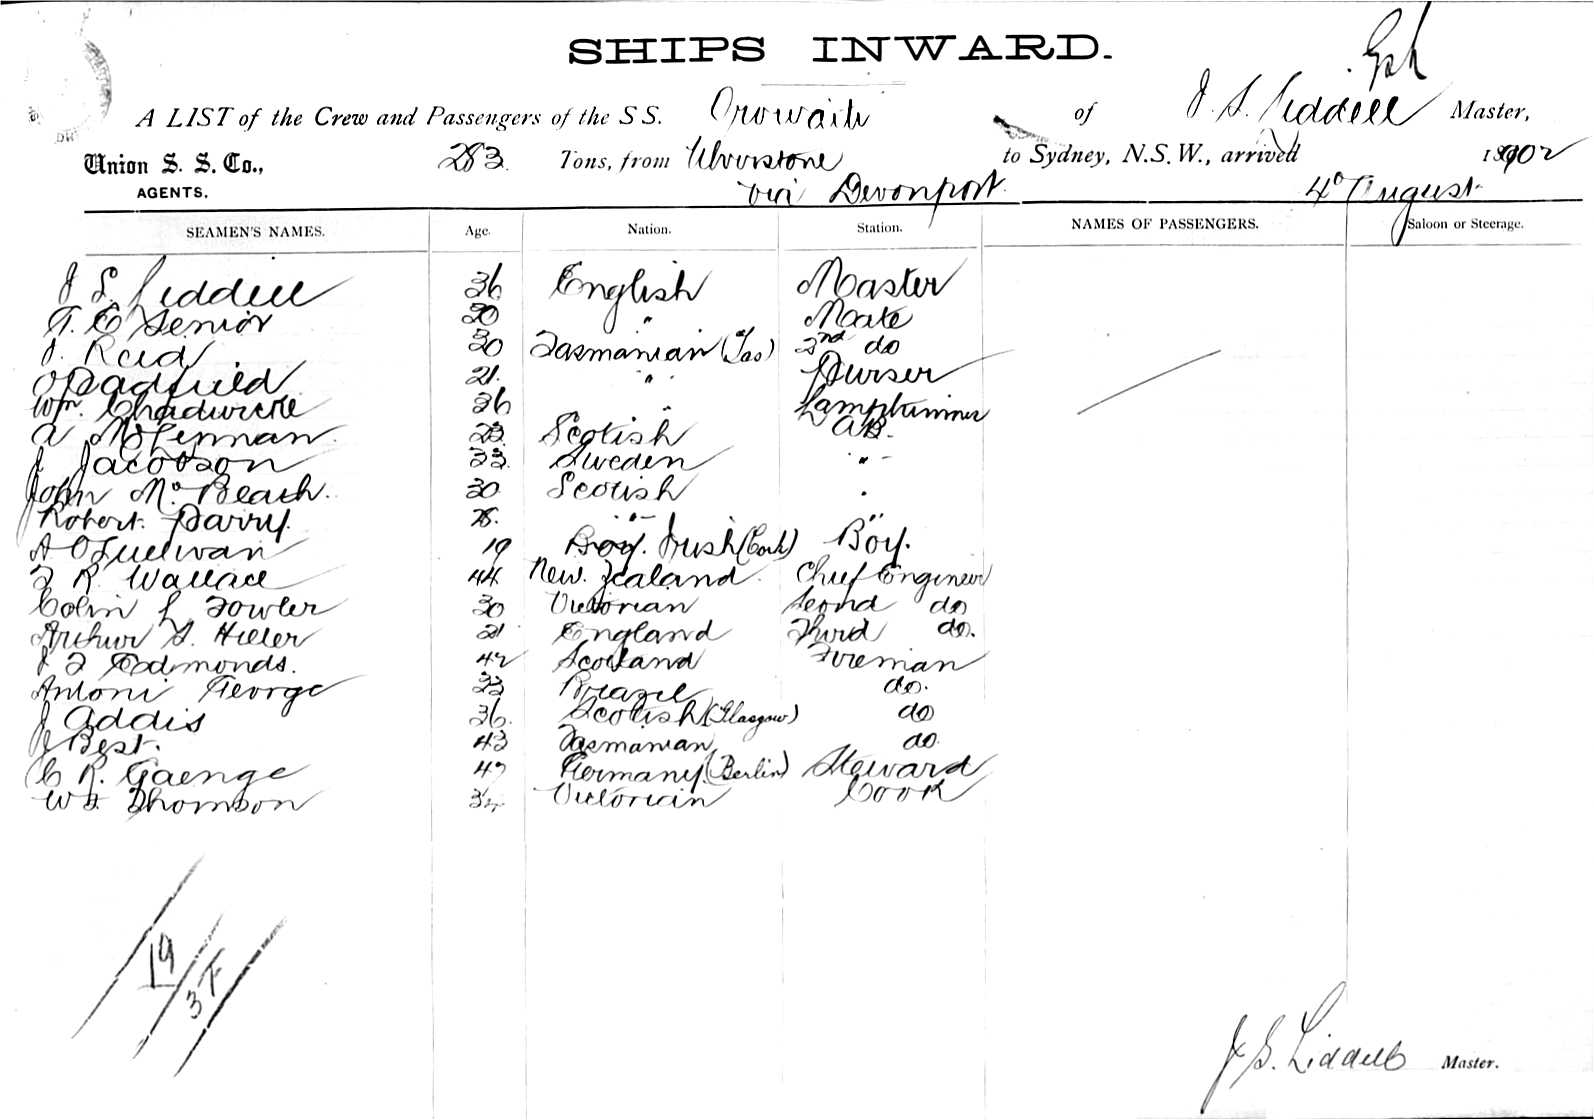 SHIPS INWARD.
A LIST of the Crew and Passengers of the S S. Orowaiti of J. S. Liddell Master,
Union S. S. Co., 283 Tons, from Ulverstone to Sydney, N.S.W., arrived 1902
AGENTS. via Devonport 4° August
SEAMEN'S NAMES. Age. Nation. Station. NAMES OF PASSENGERS. Saloon or Steerage.
J S. Liddell 36 English Master
T. E Senior " Mate
J. Reid 30 Tasmanian (Tas) 2nd do
J Padfield 21. " Purser
Wm. Chadwicke 36 " Lamptrimmer
A McLennan 23. Scotish AB.
J Jacobson 33. Sweden "
John Mc Beath. 30 Scotish "
Robert Parry. " "
A O'Sullivan 19 Boy. Irish (Cork) Boy.
R. Wallace 44 New. Zealand Chief Engineer
Colin L Fowler 30 Victorian Second do
Arthur S. Hiller 21 England Third do.
J Edmonds. 42 Scotland Fireman
Antoni George 33 Brazil do.
J Addis 36. Scotish (Glasgow) do
J Best. 43 Tasmanian do
C R. Gaenge Germany. (Berlin) Steward
Thomson 34 Victorian Cook
19
3 F
J S. Liddell Master.